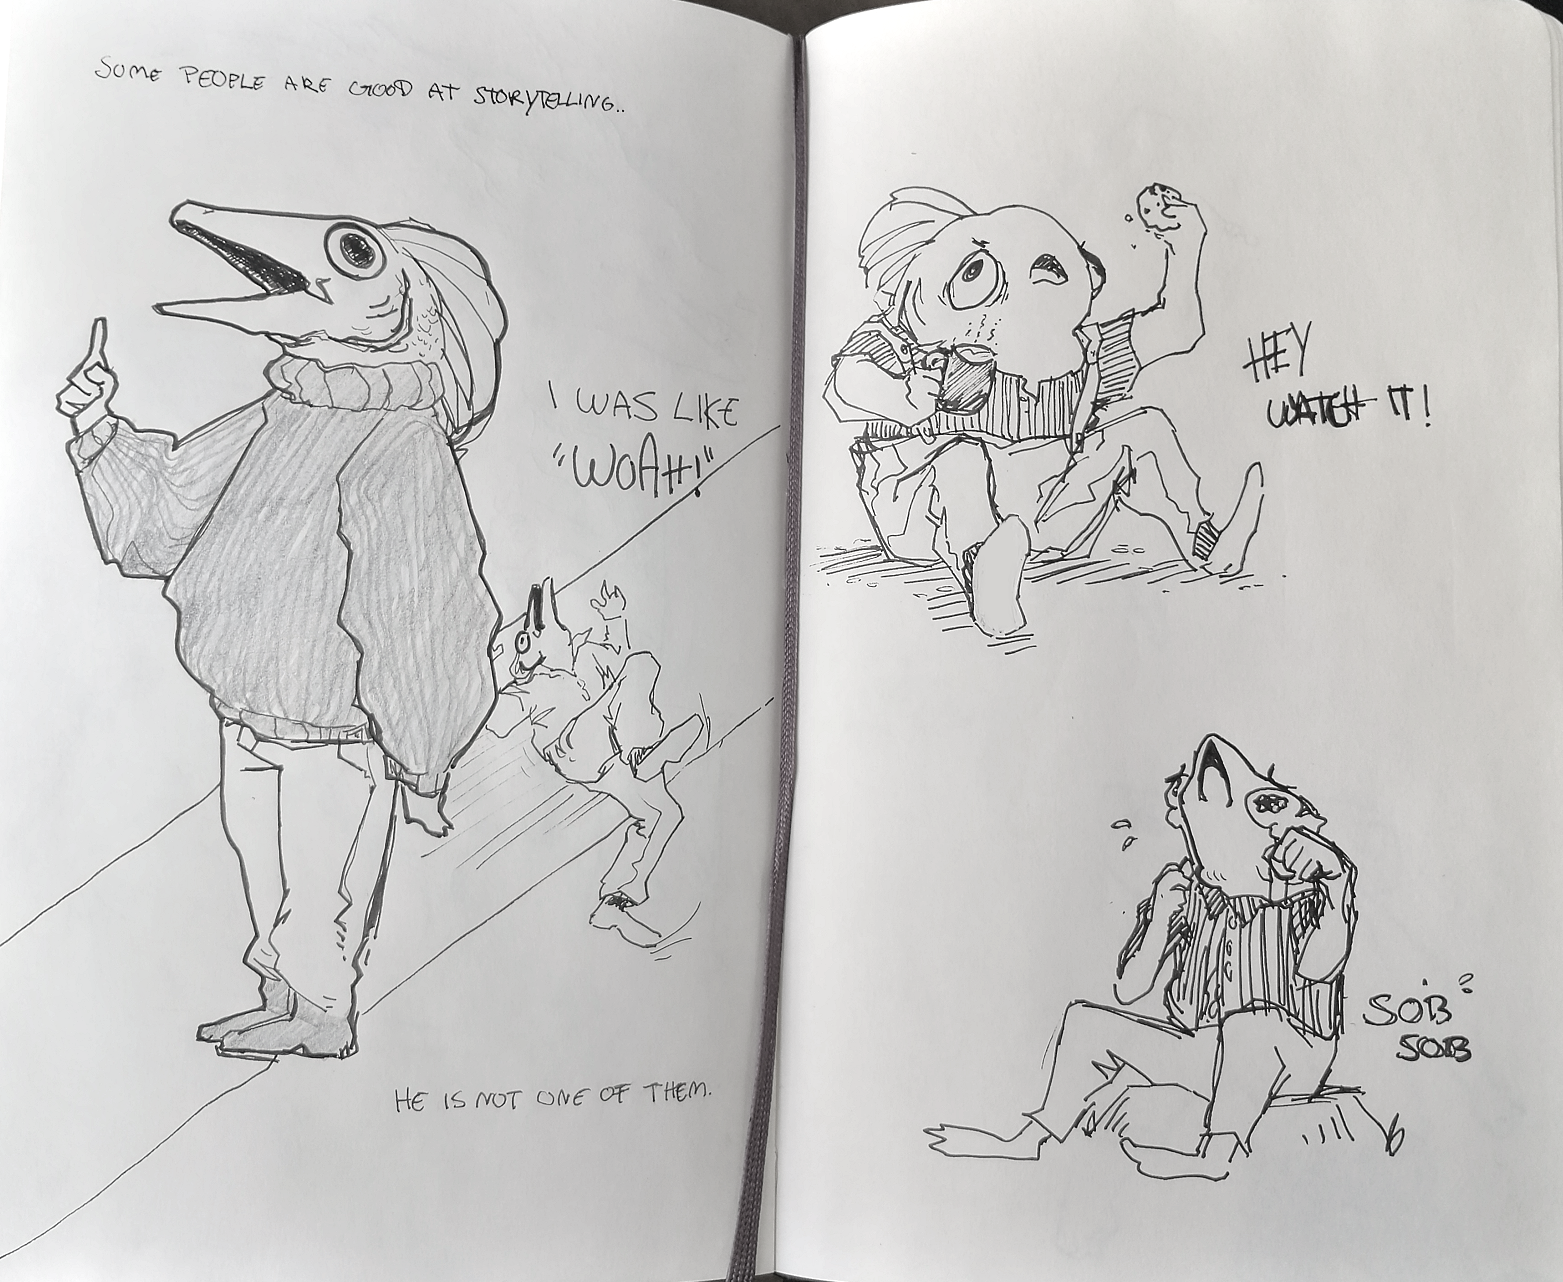 SOME PEOPLE ARE GOOD AT STORYTELLING..
I WAS LIKE
"WOAH!"
HE IS NOT ONE OF THEM.
HEY
WATCH IT!
SOB
SOB